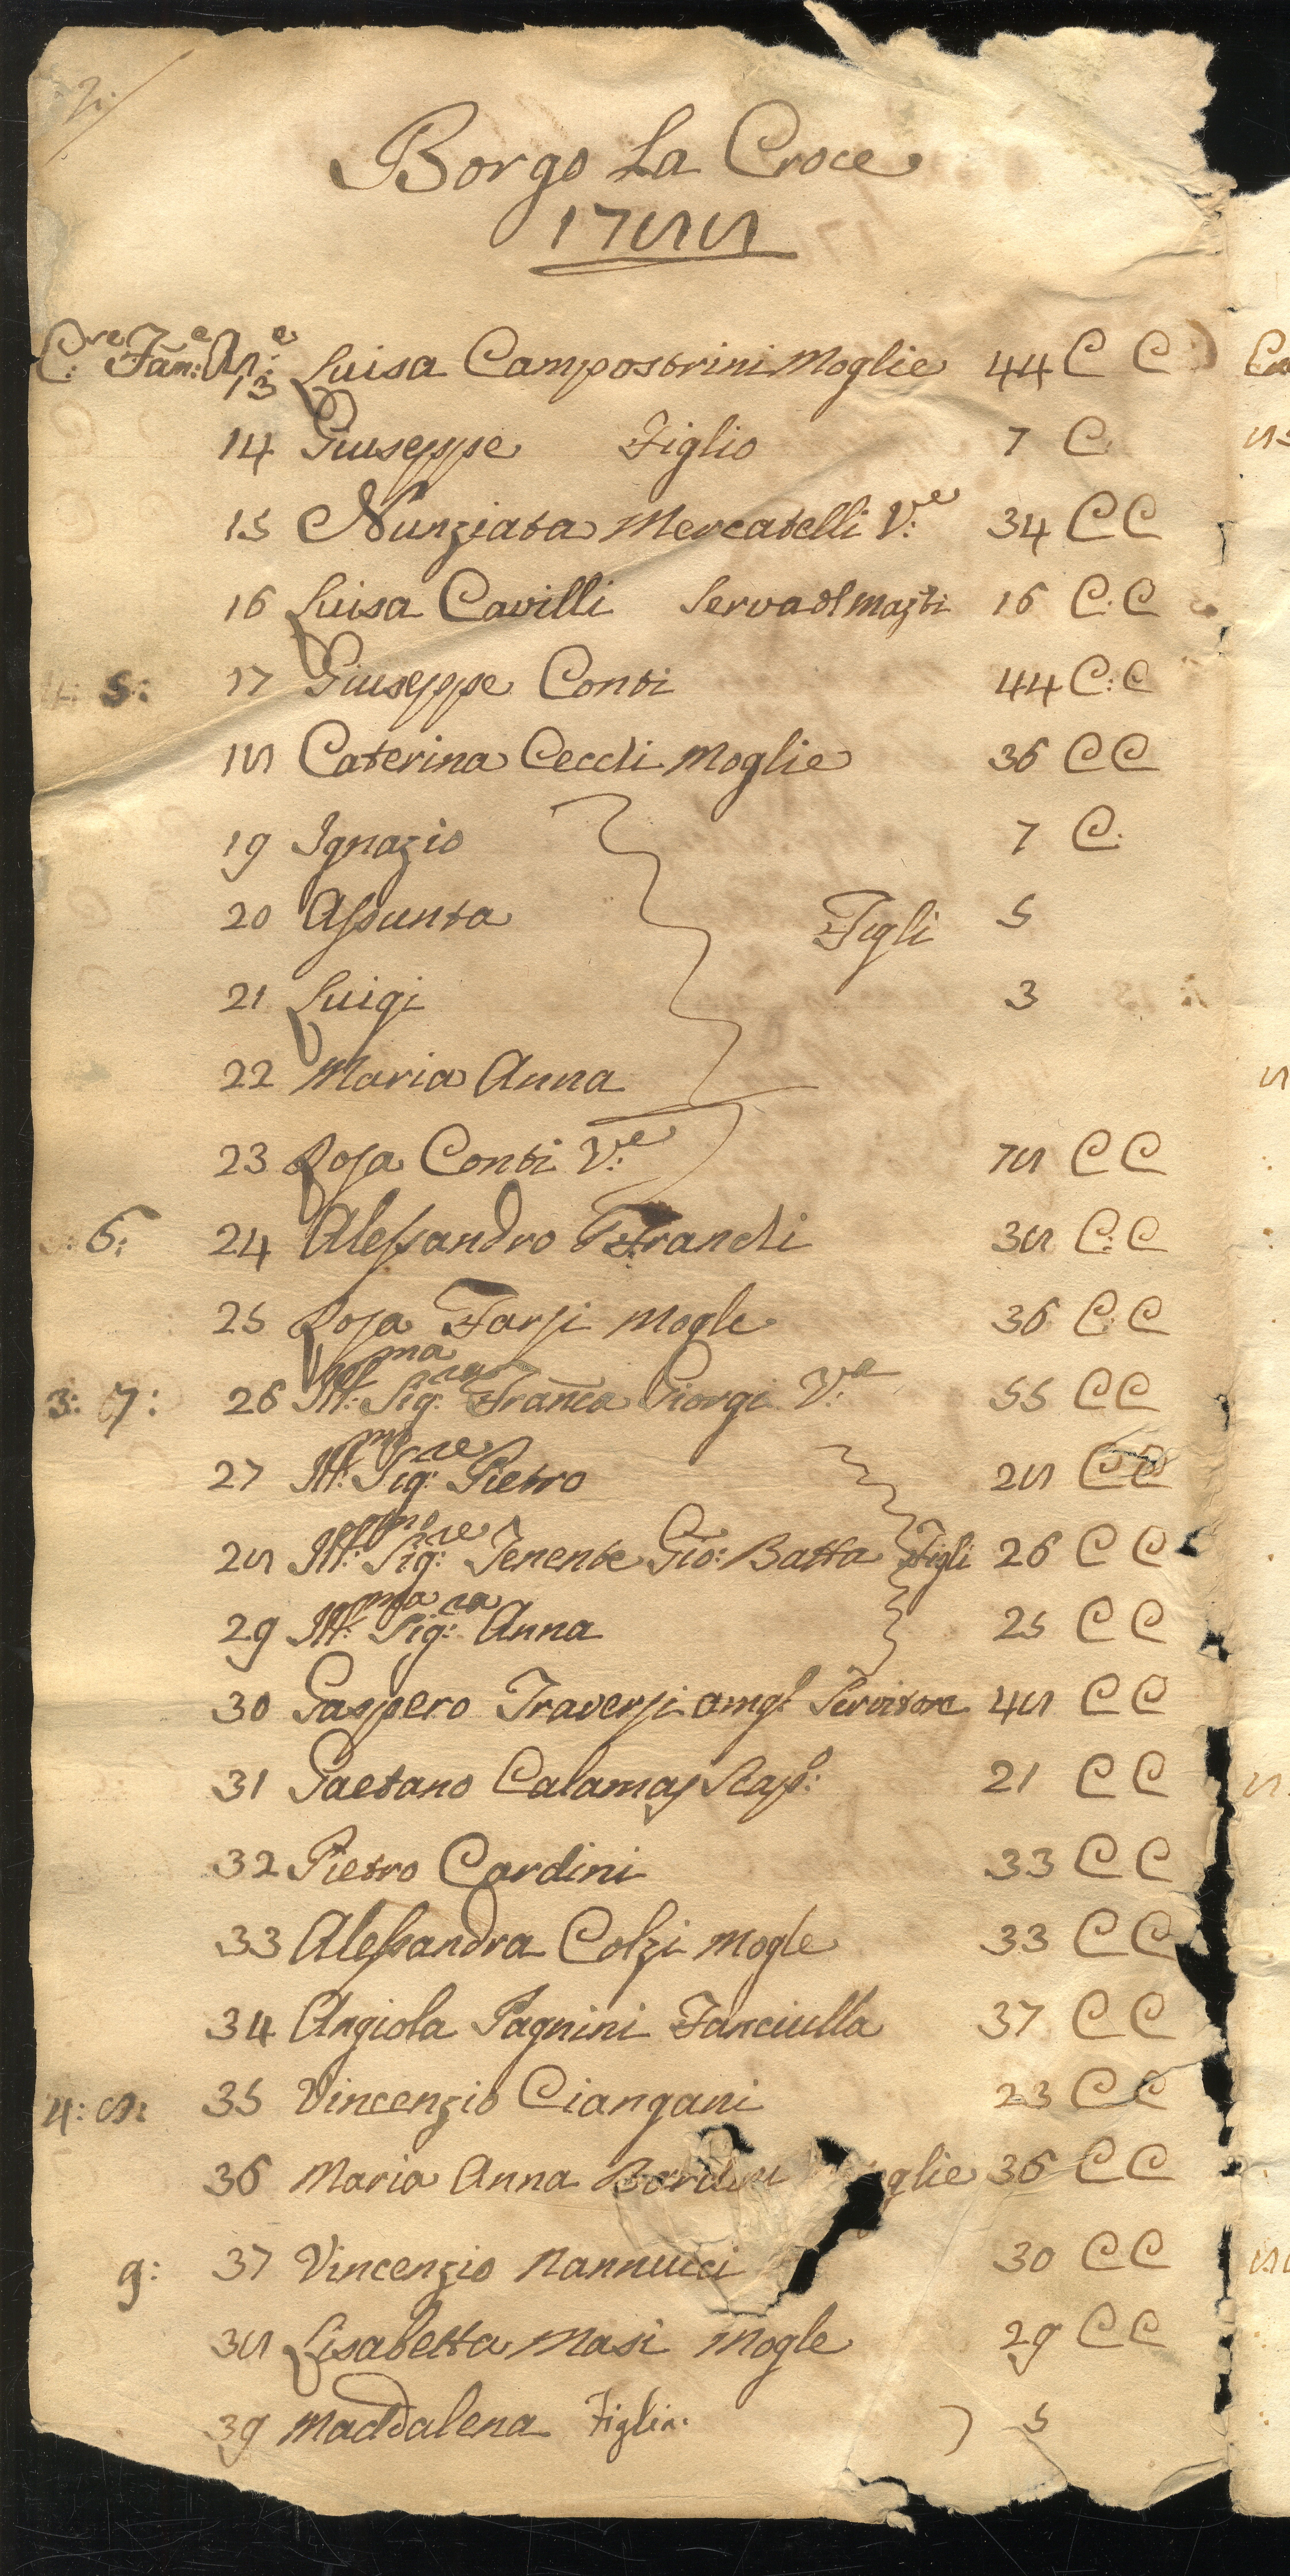 2:
Borgo La Croce
1788
C:re Fam:e An:e
13 Luisa Campostrini Moglie 44 C C
14 Giuseppe Figlio 7 C
15 Nunziata Mercatelli V:e 34 C C
16 Luisa Cavilli Serva 16 C: C
5: 17 Giuseppe Conti 44 C: C
18 Caterina Cecchi Moglie 36 C C
19 Ignazio 7 C:
20 Assunta Figli 5
21 Luigi 3
22 Maria Anna
23 Rosa Conti V:e 78 C C
6: 24 Alessandro Franchi 38 C: C
25 Rosa Farsi Mogle 36 C: C
3: 7: 26 Ill:ma Sig:ra Fran̄ca Giorgi V:a 55 C C
27 Ill:mo Sig:re Pietro 28 C C
28 Ill:mo Sig:re Tenente Gio: Batta Figli 26 C C
29 Ill:ma Sig:ra Anna 25 C C
30 Gaspero Traversi Servitore 48 C C
31 Gaetano Calamaj 21 C C
32 Pietro Cardini 33 C C
33 Alessandra Colzi Mogle 33 C C
34 Angiola Pagnini Fanciulla 37 C C
4: 8: 35 Vincenzio Ciangani 23 C C
36 Maria Anna glie 36 C C
9: 37 Vincenzio Nannucci 30 C C
38 Lisabetta Masi Mogle 29 C C
39 Maddalena Figlia: 5